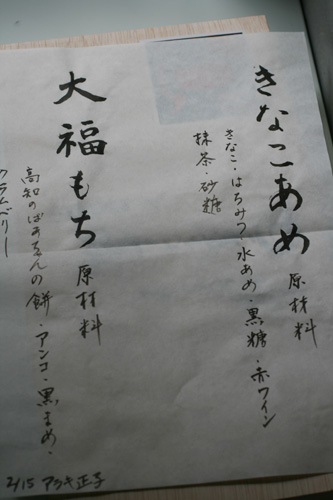 きなこあめ 原材料
きなこ・はちみつ・水あめ・黒糖・赤ワイン
抹茶・砂糖
大福もち 原材料
高知のばあちゃんの餅・アンコ・黒まめ・
クランベリー
2/15 アツキ正子